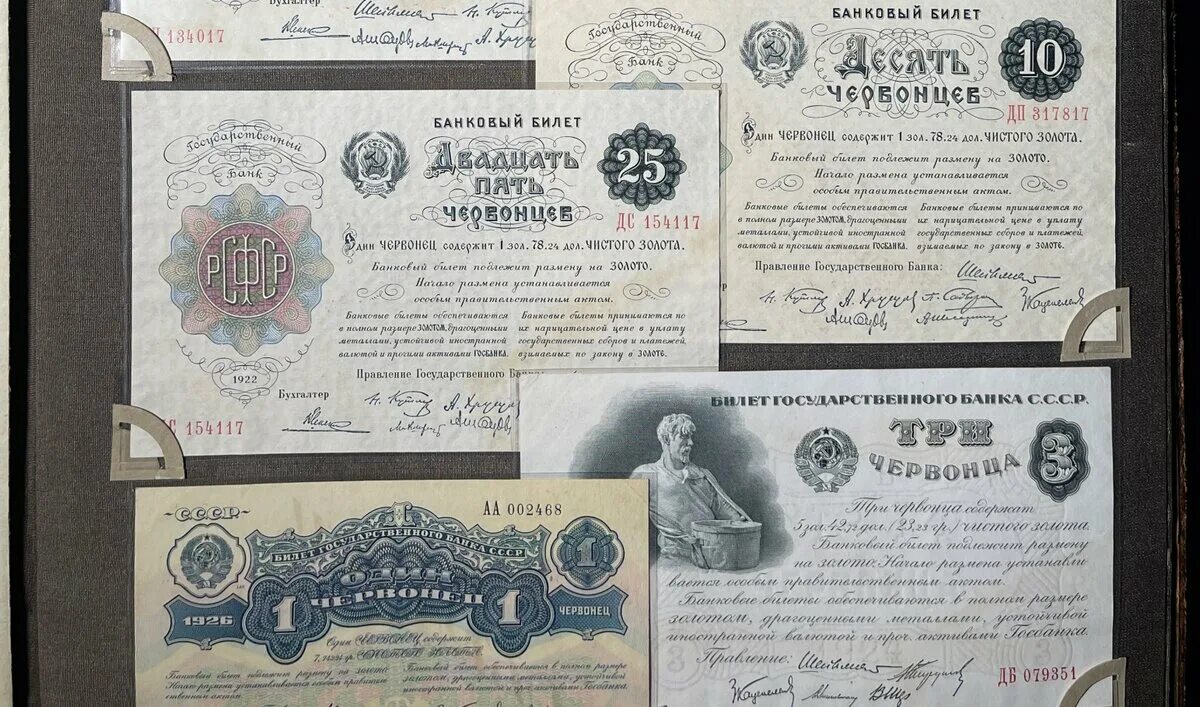 Бухгалтер
134017
Государственный
Банк
БАНКОВЫЙ БИЛЕТ
Десять
червонцев
10
ДП 317817
Один ЧЕРВОНЕЦ содержит 1 зол. 78.24 дол. ЧИСТОГО ЗОЛОТА.
Банковый билет подлежит размену на ЗОЛОТО.
Начало размена устанавливается
особым правительственным актом.
Банковые билеты обеспечиваются
в полном размере ЗОЛОТОМ, драгоценными
металлами, устойчивой иностранной
валютой и прочими активами ГОСБАНКА.
Банковые билеты принимаются по
их нарицательной цене в уплату
государственных сборов и платежей,
взимаемых по закону в ЗОЛОТЕ.
Правление Государственного Банка:
Государственный
Банк
РСФСР
1922
БАНКОВЫЙ БИЛЕТ
Двадцать
пять
червонцев
25
ДС 154117
Один ЧЕРВОНЕЦ содержит 1 зол. 78.24 дол. ЧИСТОГО ЗОЛОТА.
Банковый билет подлежит размену на ЗОЛОТО.
Начало размена устанавливается
особым правительственным актом.
Банковые билеты обеспечиваются
в полном размере ЗОЛОТОМ, драгоценными
металлами, устойчивой иностранной
валютой и прочими активами ГОСБАНКА.
Банковые билеты принимаются по
их нарицательной цене в уплату
государственных сборов и платежей,
взимаемых по закону в ЗОЛОТЕ.
Правление Государственного
Бухгалтер
С 154117
БИЛЕТ ГОСУДАРСТВЕННОГО БАНКА С.С.С.Р.
ТРИ
ЧЕРВОНЦА
3
Три червонца содержат
5 зол. 42,72 дол. (23,23 гр.) чистого золота.
Банковый билет подлежит размену
на золото. Начало размена устанавли
вается особым правительственным актом.
Банковые билеты обеспечиваются в полном размере
золотом, драгоценными металлами, устойчивой
иностранной валютой и проч. активами Госбанка.
Правление:
ДБ 079351
СССР
АА 002468
БИЛЕТ ГОСУДАРСТВЕННОГО БАНКА С.С.С.Р.
ОДИН
ЧЕРВОНЕЦ
1
1
1
1926
ЧЕРВОНЕЦ
Один ЧЕРВОНЕЦ содержит
ЧИСТОГО ЗОЛОТА.
Банковый билет подлежит размену на золото.
Начало размена устанавливается особым правитель
ственным актом.
Банковый билет обеспечивается в полном размере
золотом, драгоценными металлами, устойчивой
иностранной валютой и проч. активами Госбанка.